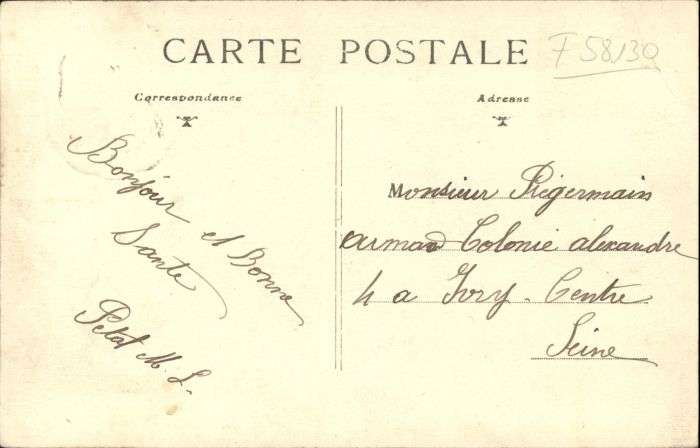 CARTE POSTALE
F 58130
Correspondance
Adresse
Bonjour et Bonne
Santé
Petat M. L.
Monsieur Régermain
Armand Colonie alexandre
4 a Ivry. Centre
Seine